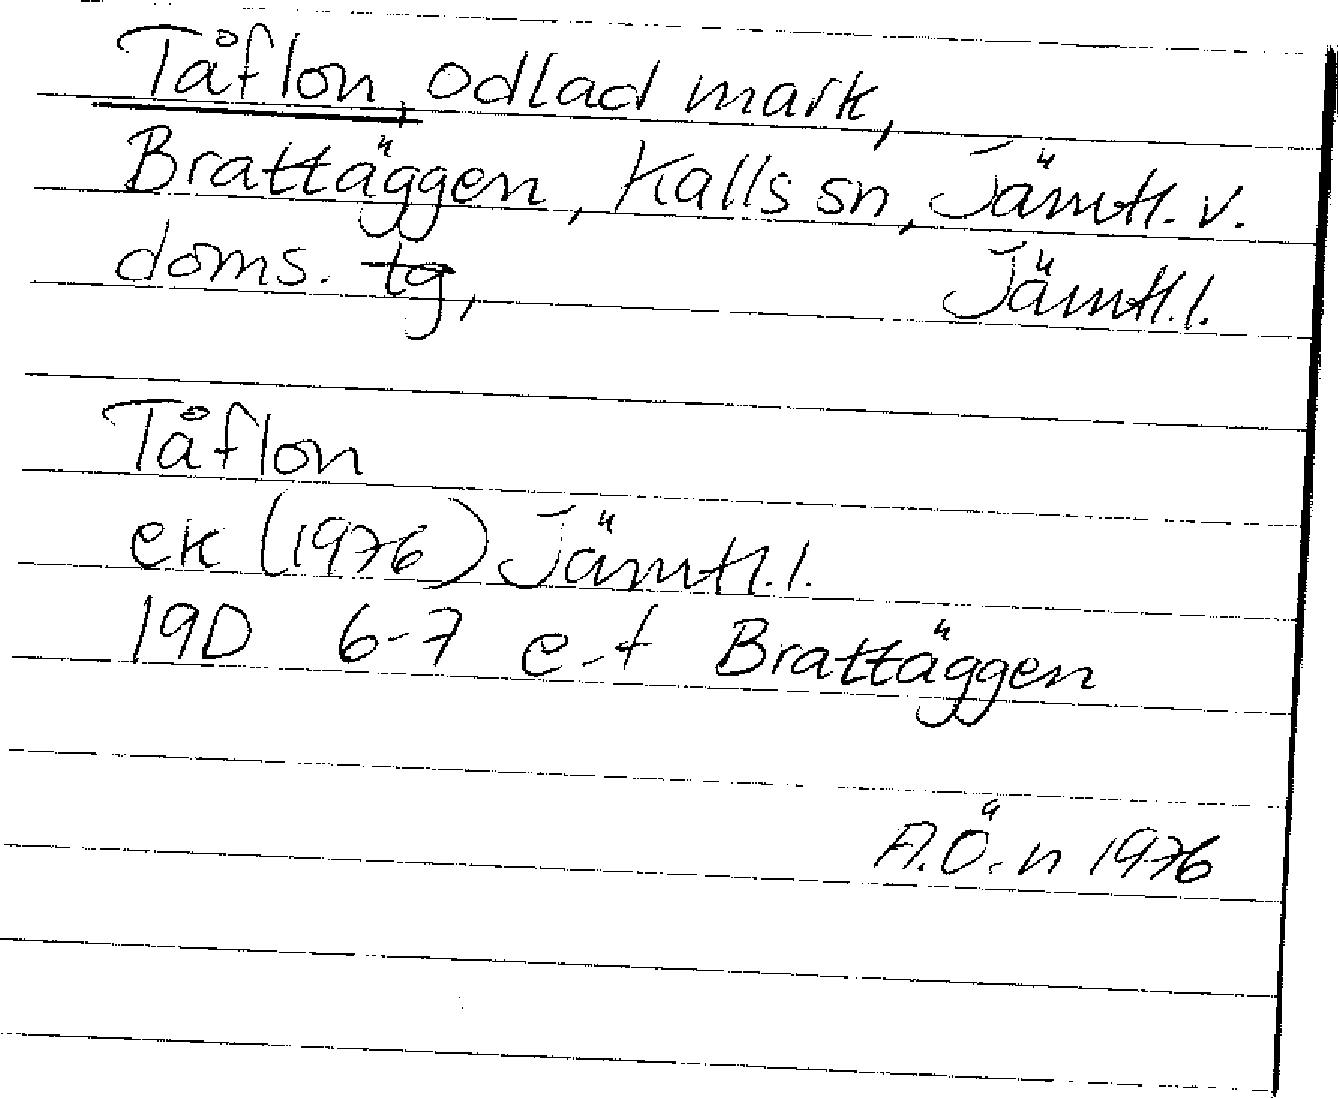 Tåflon, odlad mark,
Brattäggen, Kalls sn, Jämtl. v.
doms. tg, Jämtl. l.
Tåflon
ek (1976) Jämtl. l.
19D 6-7 e-f Brattäggen
A.Ö.n 1976